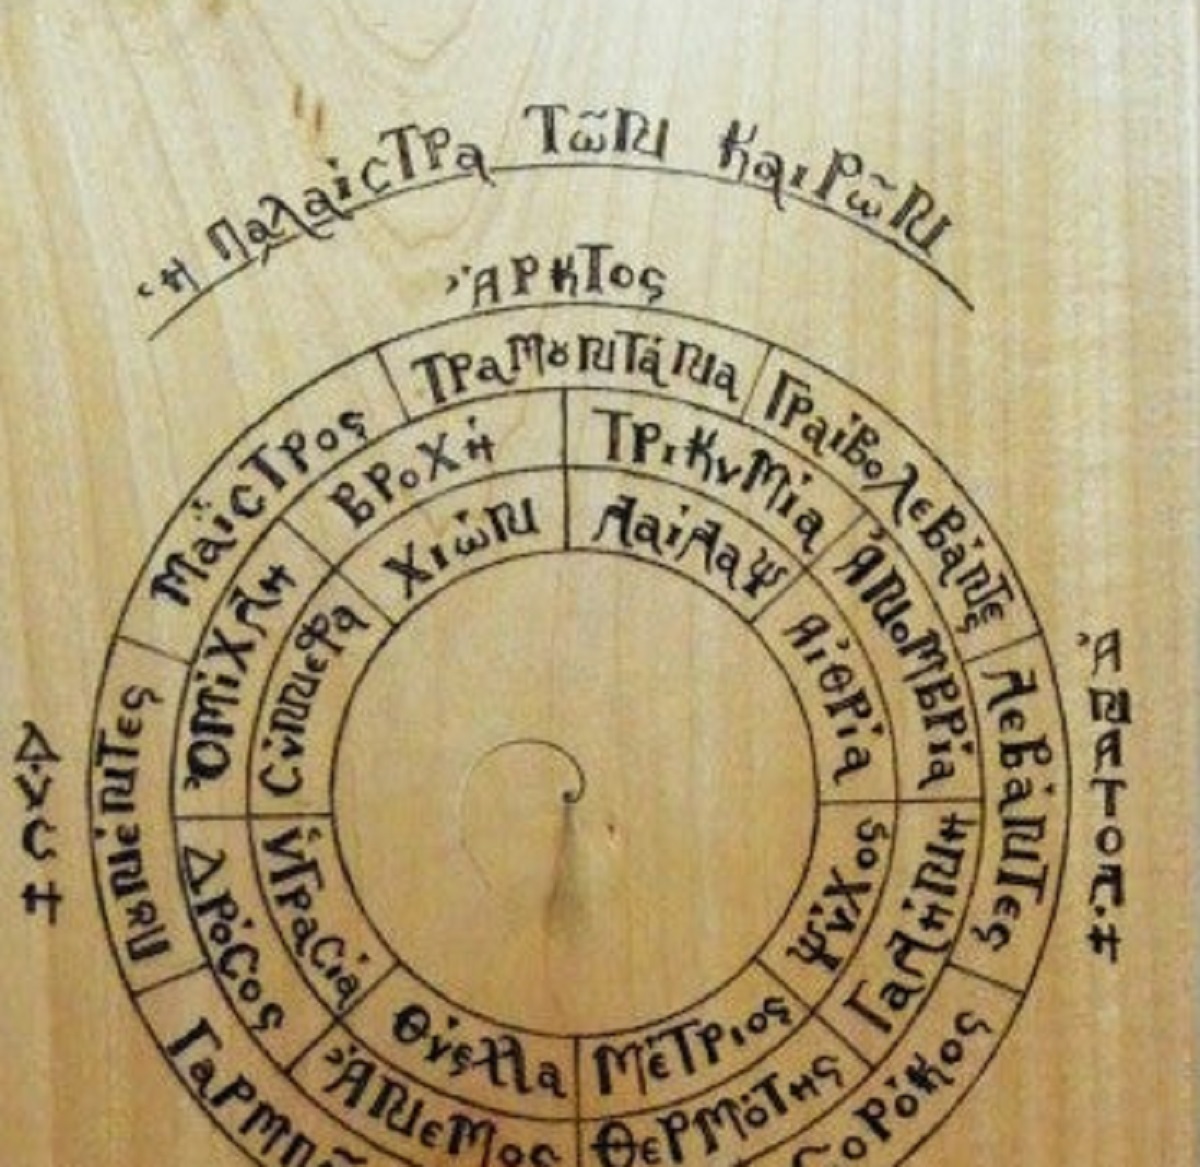 Ἡ Παλαίστρα Τῶν Καιρῶν
Ἄρκτος
Τραμουντάνα
Γραιβολεβάντε
Λεβάντες
Σορόκος
Πουνέντες
Μαΐστρος
Βροχή
Τρικυμία
Ἀνομβρία
Γαλήνη
Θερμότης
Ἄνεμος
Δρόσος
Ὀμίχλη
Χιών
Λαίλαψ
Αἰθρία
Ψύχος
Μέτριος
Θύελλα
Ὑγρασία
Σύννεφα
Ἀνατολή
Δύση